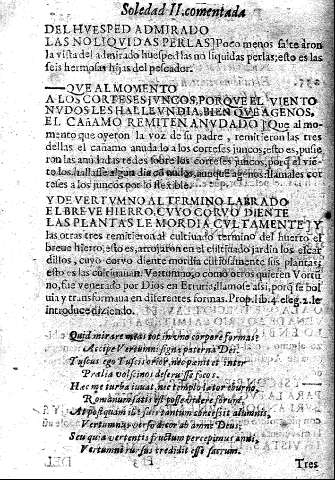 Soledad II. comentada
DEL HVESPED ADMIRADO
LAS NO LIQVIDAS PERLAS] Poco menos saltearon
la vista del admirado huesped las no liquidas perlas; esto es las
seis hermosas hijas del pescador.
—QVE AL MOMENTO
A LOS CORTESES JVNCOS, PORQVE EL VIENTO
NVDOS LES HALLE VN DIA, BIEN QVE AGENOS,
EL CAñAMO REMITEN ANVDADO] Que al mo-
mento que oyeron la voz de su padre, remitieron las tres
dellas el cañamo anudado a los corteses juncos; esto es, pusie
ron las anudadas redes sobre los corteses juncos, porq̃ el viẽ-
to los hallasse algun dia cõ nudos, aunque agenos, llamales cor
teses a los juncos por lo flexible.
Y DE VERTVMNO AL TERMINO LABRADO
EL BREVE HIERRO, CVYO CORVO DIENTE
LAS PLANTAS LE MORDIA CVLTAMENTE] Y
las otras tres remitieron al cultiuado termino del huerto el
breve hierro, esto es, arrojaron en el distrito del jardin los esca
dillos, cuyo corvo diente mordia cultamente sus plantas;
esto es las cultiuaua. Vertumno, o como otros quieren Vortũ
no, fue venerado por Dios en Etruria; llamose assi, porq̃ se bol
uia y transformaua en diferentes formas. Prop. lib. 4. eleg. 2. le
introduce diziendo.
Quid mirare meas tot in vno corpore formas?
Accipe Vertumni signa paterna Dei.
Tuscus ego Tuscis orior, nec pœnitet inter
Prælia volsinos deseruisse focos.
Hæc me turba iuuat, nec templo lætor eburno,
Romanum satis est posse videre forum.
At postquam ille suis tantum concessit alumnis,
Vertumnus verso dicor ab amne Deus;
Seu quia vertentis fructum percepimus anni,
Vertumni rursus credidit esse sacrum.
Tres